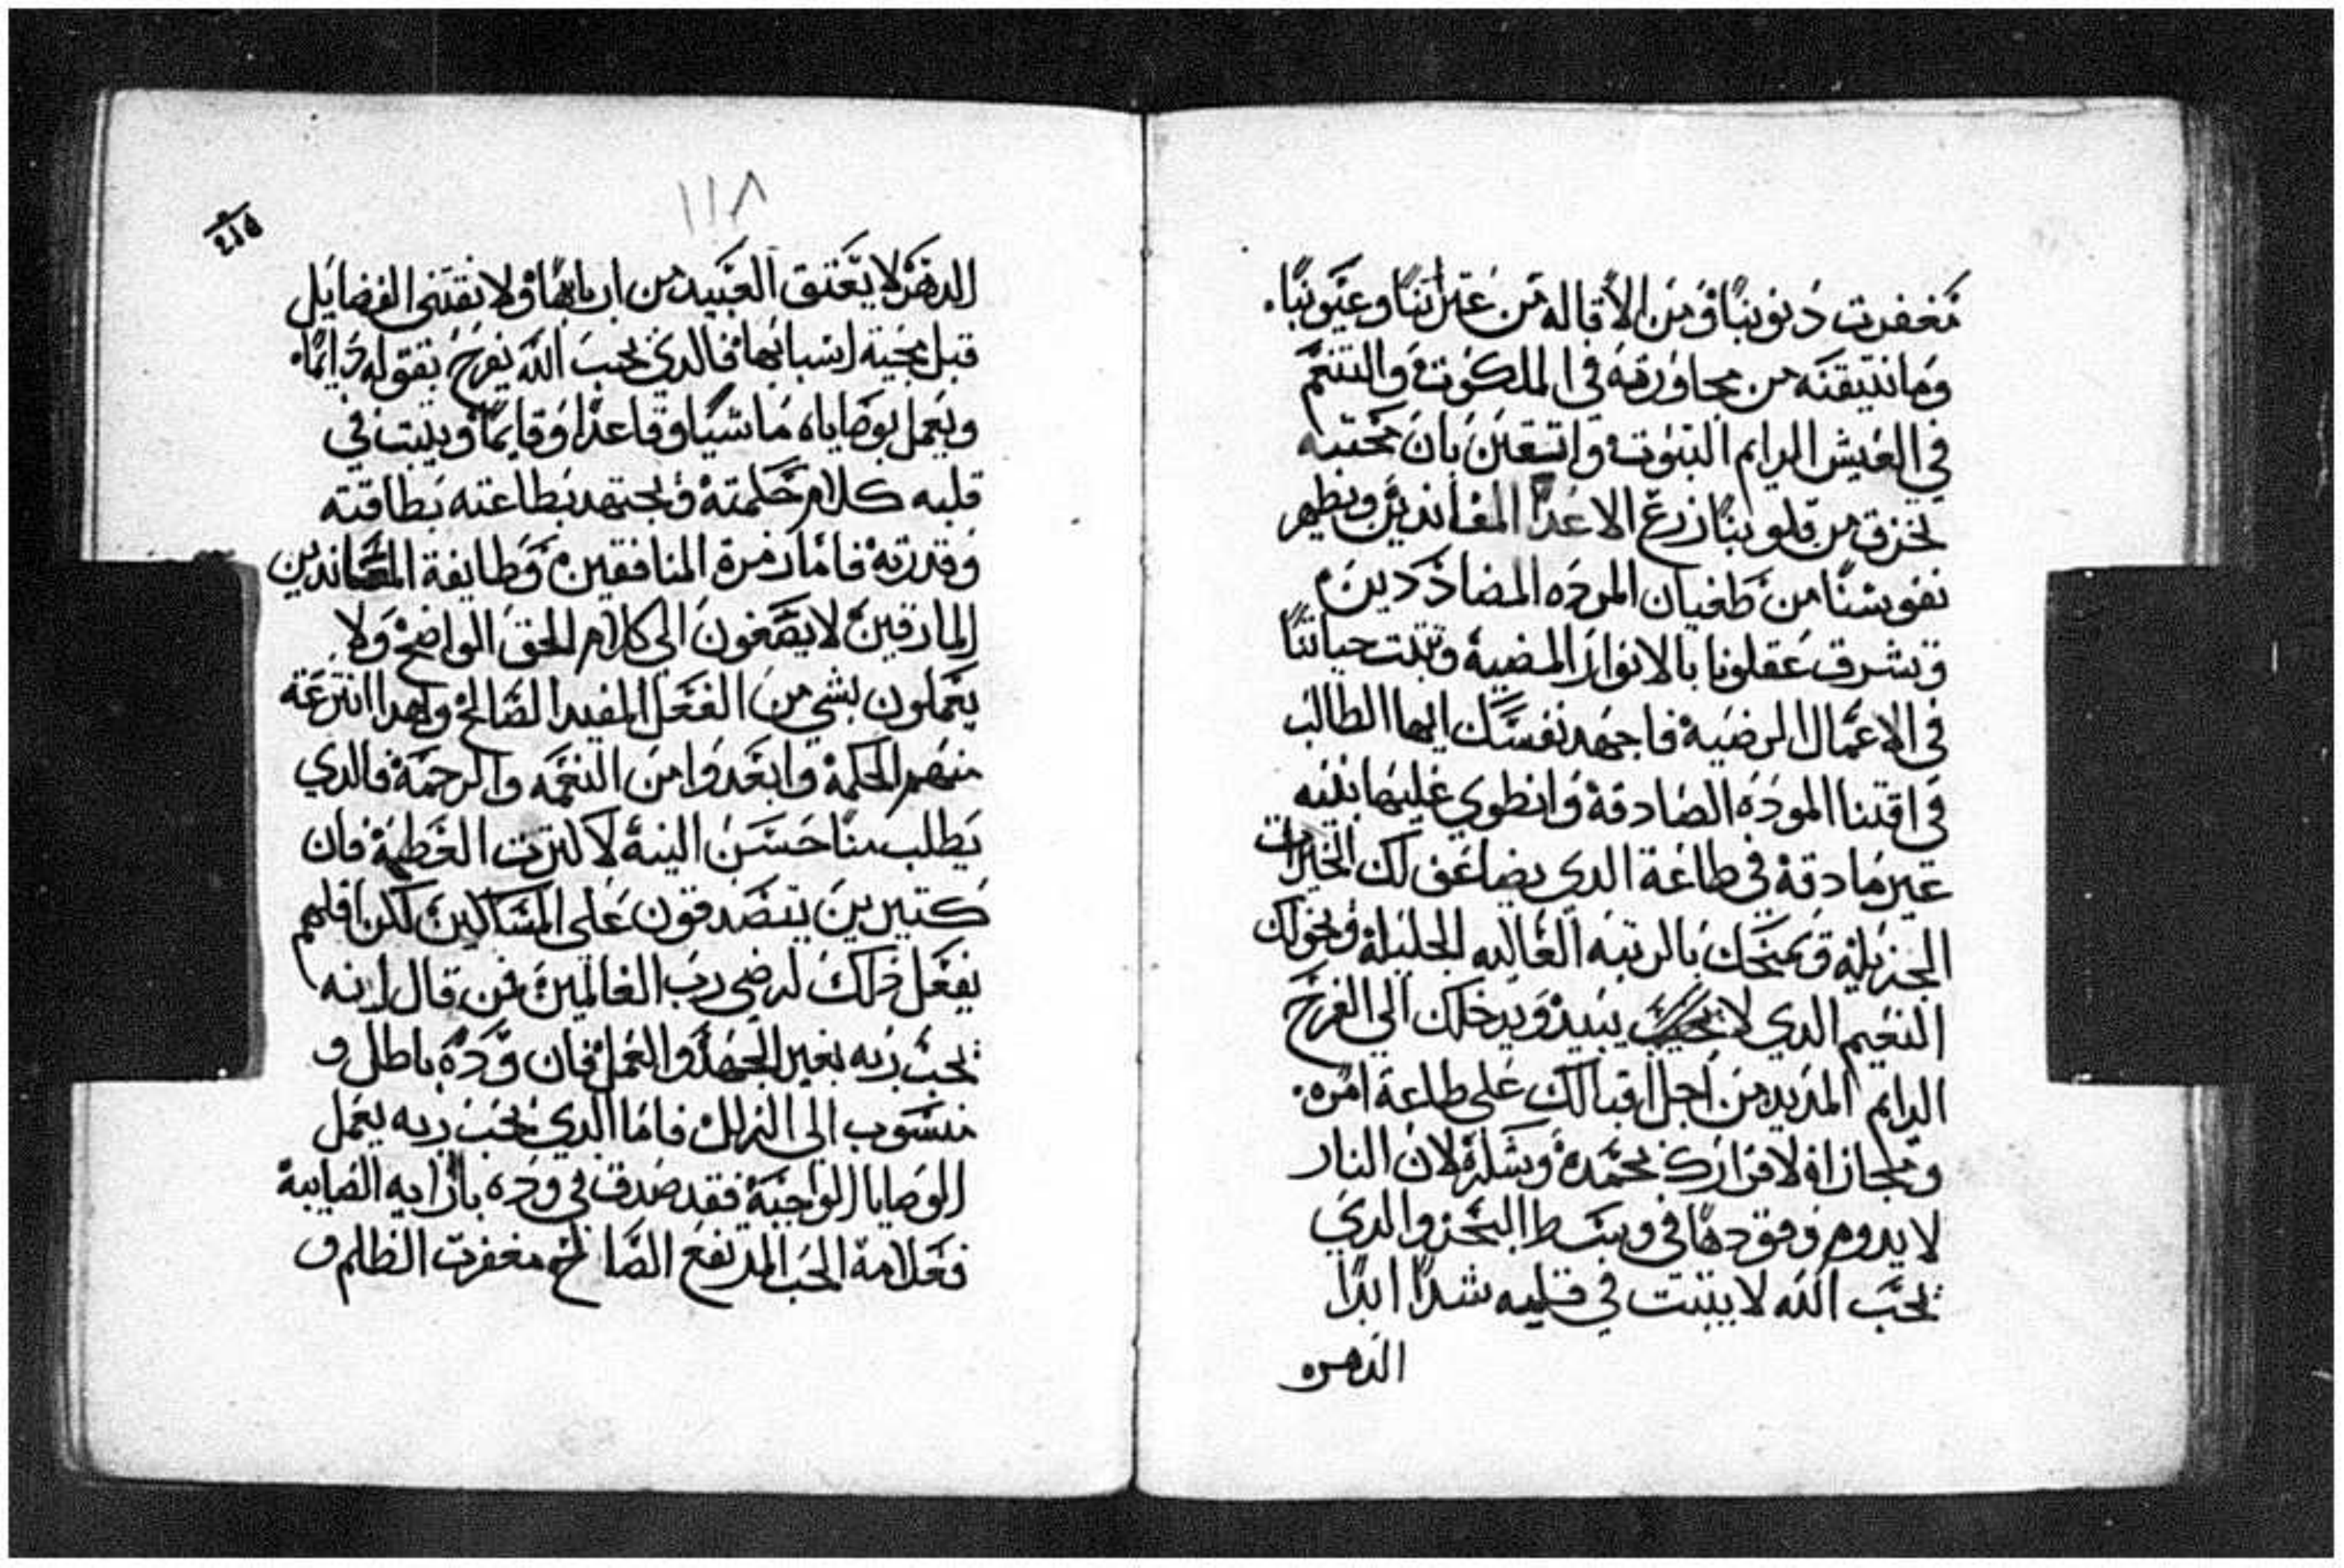 مغفرت دنوبنا ومن الاقاله من عتراتنا وعيوبنا.
وما نتيقنه من مجاورته في الملكوت والتنعم
في العيش الدايم التبوت واتيقن بان محبته
تحرق من قلوبنا زرع الاعدا المعاندين وتطهر
نفوسنا من طغيان المرده المضاددين
وتشرق عقلونا بالانوار المضيه وتتبت حياتنا
في الاعمال الرضيه فاجهد نفسك ايها الطالب
في اقتنا الموده الصادقه وانطوي عليها بنيه
غير مادقة في طاعة الدي يضاعف لك الخيرات
الجزيله ويمنحك بالرتبه العاليه الجليله ويخولك
النعيم الدي لا يبيد ويدخلك الي الفرح
الدايم المديد من اجل اقبالك علي طاعة امره.
ومجازاة لاقرارك بحمده وشكره لان النار
لا يدوم وقودها في وسط البحر والدي
يحب الله لا يتبت في قلبه شدا ابدا
الدهر
١١٨
الدهر لا يعتق العبيد من اربابها ولا تقتني الفضايل
قبل مجية اسبابها فالدي يحب الله يفرح بتقواه دايما.
ويعمل بوصاياه ماشيا وقاعدا وقايما ويتبت في
قلبه كلام حكمته ويجتهد بطاعته بطاقته
وقدرته فاما زمرة المنافقين وطايفة المعاندين
المارقين لا يصغون الي كلام الحق الواضح ولا
يعملون بشي من الفعل المفيد الصالح ولهدا انتزعة
منهم الحكمة وابعدوا من النعمه والرحمة فالدي
يطلب منا حسن النية لا كترت العطية فان
كتيرين يتصدقون علي المساكين لكن اقلهم
يفعل دلك لرضي رب العالمين فمن قال انه
يحب ربه بغير الجهد والعمل فان وده باطل و
منسوب الي الزلل فاما الدي يحب ربه يعمل
الوصايا الواجبة فقد صدق في وده بارايه الصايبة
فعلامة الحب المرتفع الصالح مغفرت الظلم و